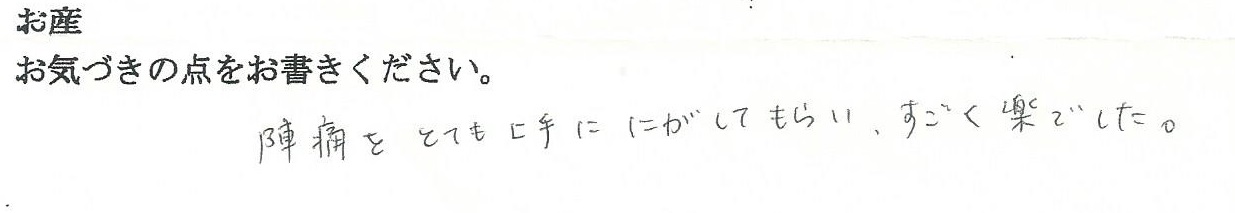 お産
お気づきの点をお書きください。
陣痛をとても上手ににがしてもらい、すごく楽でした。